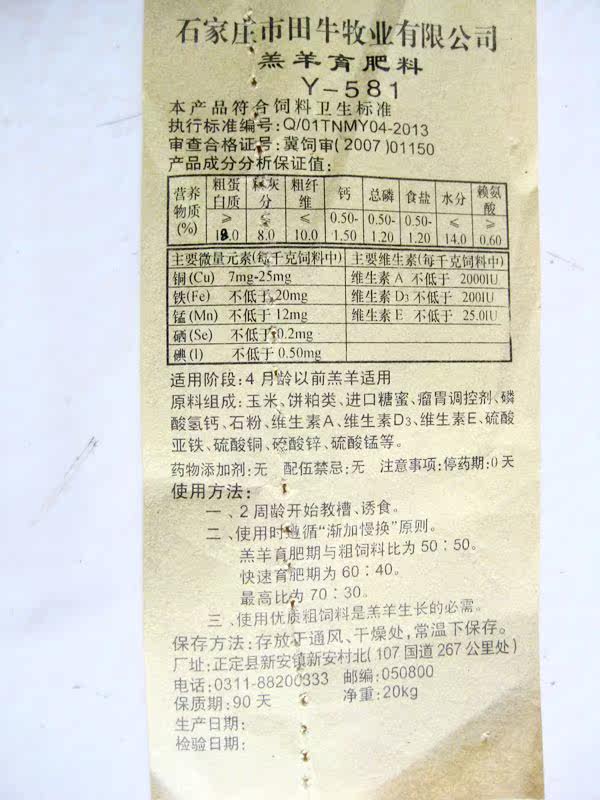 石家庄市田牛牧业有限公司
羔羊育肥料
Y-581
本产品符合饲料卫生标准
执行标准编号:Q/01TNMY04-2013
审查合格证号:冀饲审(2007)01150
产品成分分析保证值:
营养物质(%) 粗蛋白质 粗灰分 粗纤维 钙 总磷 食盐 水分 赖氨酸
≥ ≤ ≤ 0.50- 0.50- 0.50- ≤ ≥
18.0 8.0 10.0 1.50 1.20 1.20 14.0 0.60
主要微量元素(每千克饲料中) 主要维生素(每千克饲料中)
铜(Cu) 7mg-25mg 维生素A 不低于 2000IU
铁(Fe) 不低于20mg 维生素D3 不低于 200IU
锰(Mn) 不低于12mg 维生素E 不低于 25.0IU
硒(Se) 不低于0.2mg
碘(I) 不低于0.50mg
适用阶段:4月龄以前羔羊适用
原料组成:玉米、饼粕类、进口糖蜜、瘤胃调控剂、磷
酸氢钙、石粉、维生素A、维生素D3、维生素E、硫酸
亚铁、硫酸铜、硫酸锌、硫酸锰等。
药物添加剂:无 配伍禁忌:无 注意事项:停药期:0天
使用方法:
一、2周龄开始教槽、诱食。
二、使用时遵循“渐加慢换”原则。
羔羊育肥期与粗饲料比为50:50。
快速育肥期为60:40。
最高比为70:30。
三、使用优质粗饲料是羔羊生长的必需。
保存方法:存放于通风、干燥处,常温下保存。
厂址:正定县新安镇新安村北(107国道267公里处)
电话:0311-88200333 邮编:050800
保质期:90天 净重:20kg
生产日期:
检验日期: